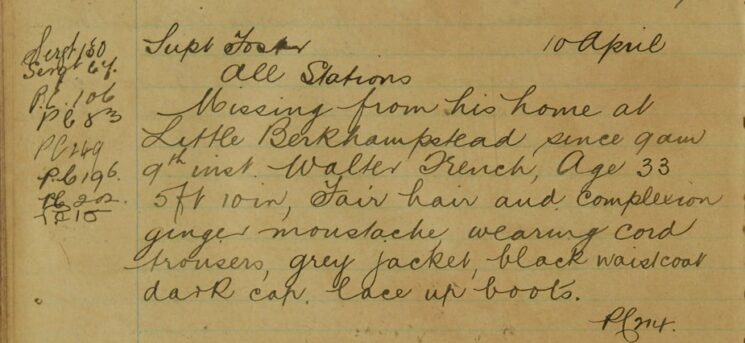 Supt Foster 10 April
All Stations
Missing from his home at
Little Berkhampstead, since 9am
9th inst. Walter French, Age 33
5ft 10in, Fair hair and complexion
ginger moustache, wearing cord
trousers, grey jacket, black waistcoat
dark cap, lace up boots.
Sergt 130
Sergt 67.
P.C. 106
PC 83
PC 249
P.C 196.
PC 202.